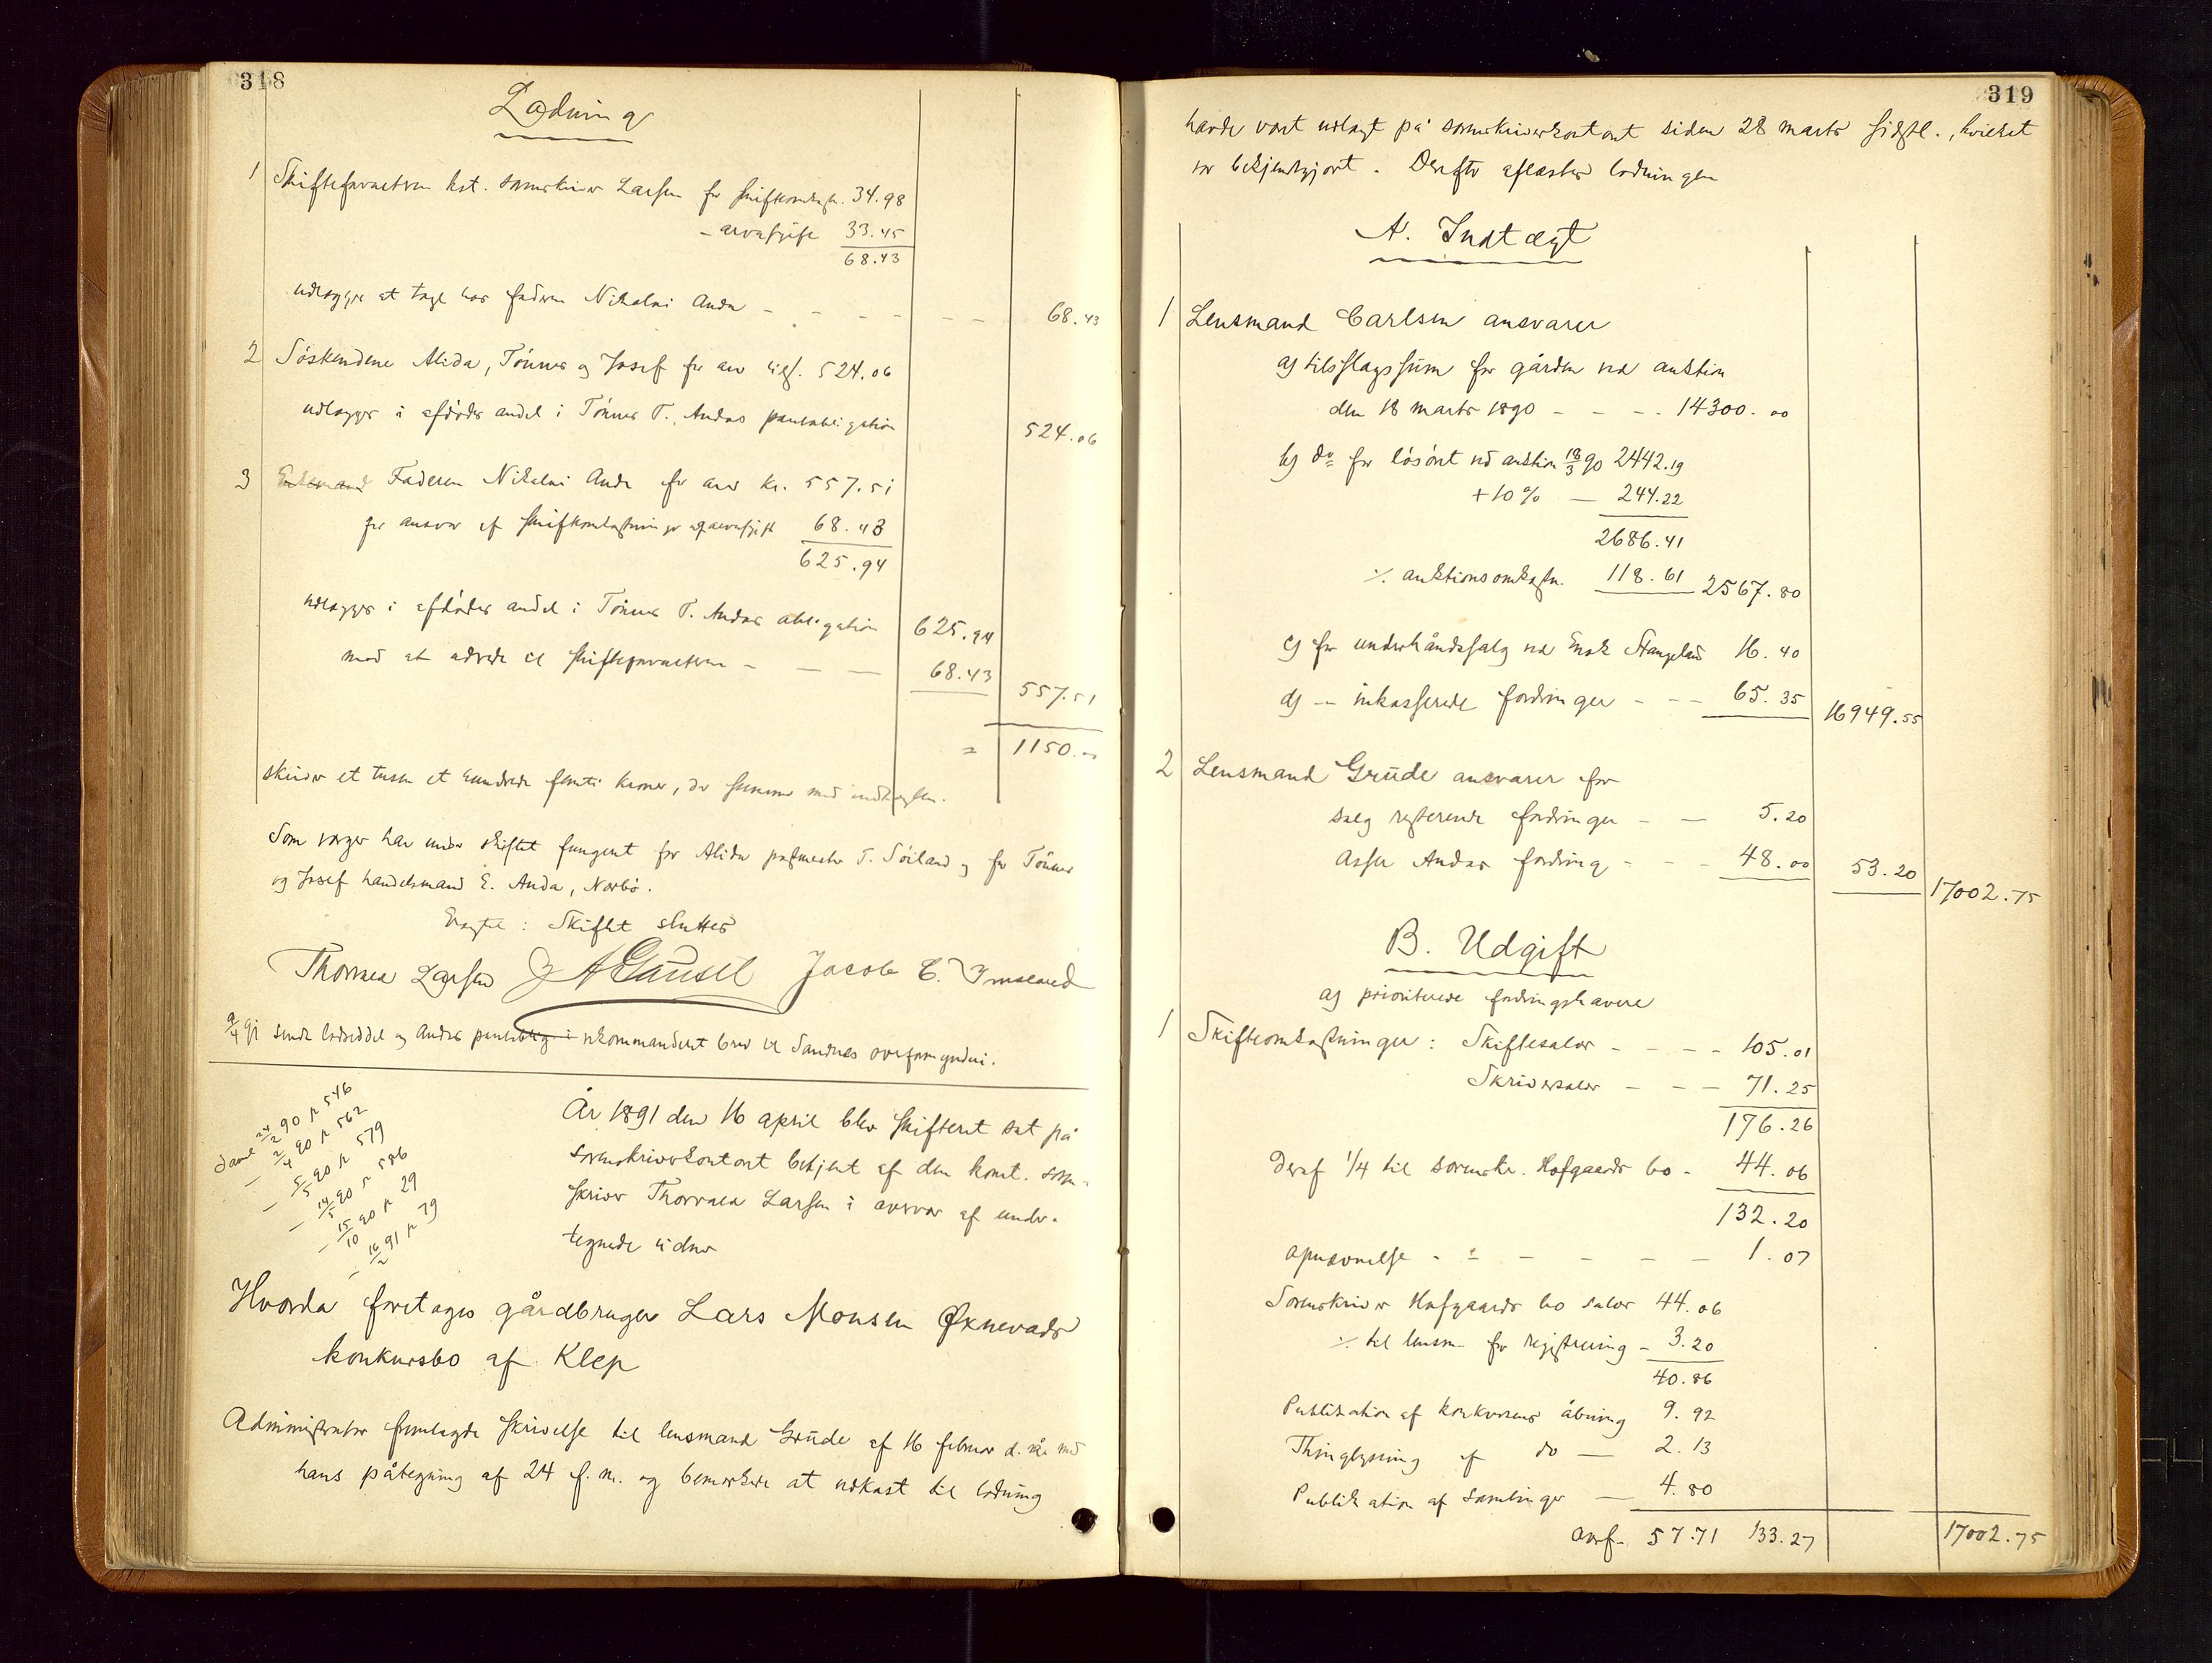 318
Lodning
1 Skifteforvalteren kst. sorenskriver Larsen for skifteomkostn. 34.98
- arveafgift 33.45
68.43
udlægges at tage hos faderen Nikolai Anda - - - - - - 68.43
2 Söskendene Alida, Tönnes og Josef for arv tils. 524.06
udlægges i afdödes andel i Tönnes T. Andas panteobligation 524.06
3 Faderen Nikolai Anda for arv kr. 557.51
for ansvar af skifteomkostninger og arveafgift 68.43
625.94
udlægges i afdödes andel i Tönnes T. Andas obligation 625.94
mod at udrede til skifteforvalteren - — — 68.43 557.51
= 1150.00
skriver et tusen et hundrede femti kroner, der stemmer med indtægten.
Som værger har under skiftet fungeret for Alida postmester T. Söiland og for Tönnes
og Josef handelsmand E. Anda, Nærbö.
Eragtet: Skiftet sluttes
Thorvald Larsen J A Gausel Jacob E.
9/4 91 sendt lodseddel og Andas panteoblig. i rekommanderet brev til Sandnes overformynderi.
Saml 24/2 90 p 546
— 2/4 90 p 562
— 5/5 90 p 579
— 14/5 90 p 586
— 15/10 90 p 29
— 16/2 91 p 79
År 1891 den 16 april blev skifteret sat på
sorenskriverkontoret betjent af den konst. soren-
skriver Thorvald Larsen i overvær af under-
tegnede vidner
Hvorda foretages gårdbruger Lars Monsen Øxnevads
konkursbo af Klep
Administrator fremlagde skrivelse til lensmand Grude af 16 februar d. å. med
hans påtegning af 24 f. m. og bemærkede at udkast til lodning
319
havde vært udlagt på sorenskriverkontoret siden 28 marts sidstl., hvilket
var bekjendtgjort. Derefter aflæstes lodningen
A. Indtægt
1 Lensmand Carlsen ansvarer
a) tilslagssum for gården ved auktion
den 18 marts 1890 - - - - 14300.00
b) do for lösöret ved auktion 18/3 90 2442.19
+10% — 244.22
2686.41
÷ auktionsomkostn. 118.61 2567.80
c) for underhåndssalg ved Enok Stangeland 16.40
d) — inkasserede fordringer - - - 65.35 16949.55
2 Lensmand Grude ansvarer for
salg resterende fordringer - — 5.20
Asser Andas fordring - - - 48.00 53.20 17002.75
B. Udgift
a) prioriterede fordringshavere
1 Skifteomkostninger: Skiftesalær - - - - 105.01
Skriversalær - - - 71.25
176.26
Deraf 1/4 til sorenskr. Hofgaards bo - 44.06
132.20
opnævnelse - - - - - - 1.07
Sorenskriver Hofgaards bo salær 44.06
÷ til lensm. for registrering - 3.20
40.86
Publikation af konkursens åbning 9.92
Thinglysning af do — 2.13
Publikation af samlinger — 4.80
overf. 57.71 133.27 17002.75